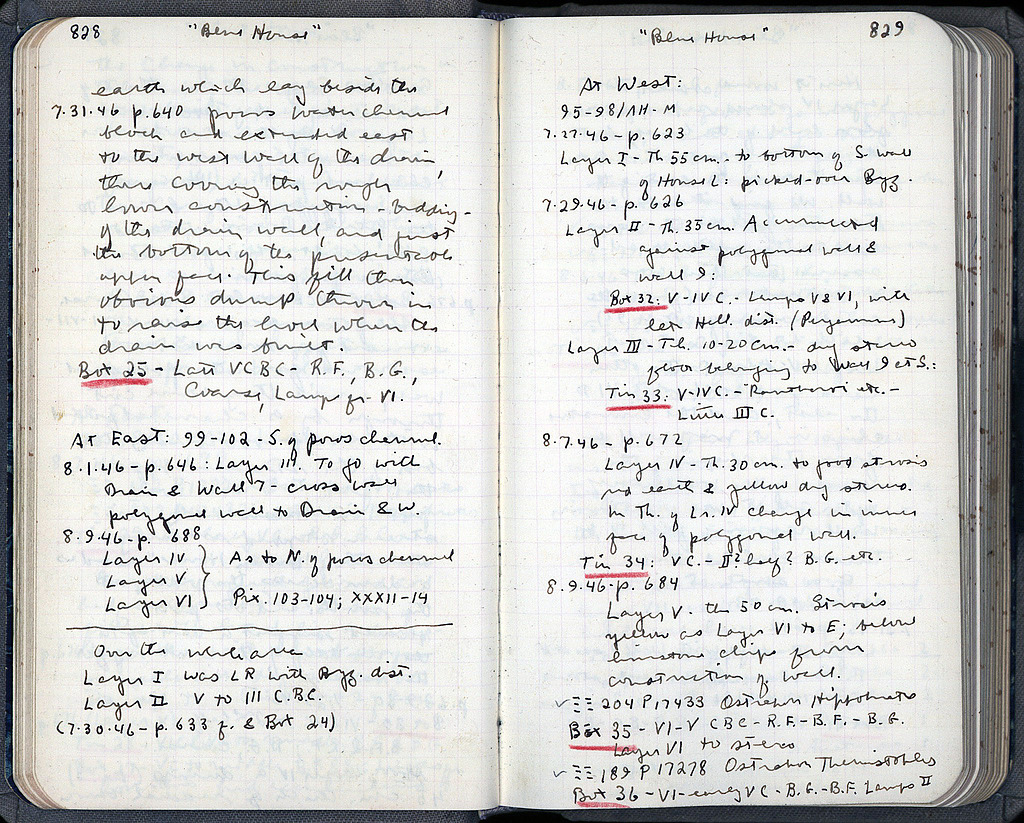 828 "Blue House"
earth which lay beside the
7.31.46 p.640 poros water channel
block and extended east
to the west wall of the drain,
there covering the rough
lower construction - bedding -
of the drain wall, and just
the bottom of the presentable
upper face. This fill then
obvious dump thrown in
to raise the level when the
drain was built.
Box 25 - Late V C BC - R.F., B.G.,
Coarse, Lamps fr. VI.
At East: 99-102 - S. of poros channel.
8.1.46 - p.646: Layer III. To go with
Drain & Wall 7 - cross wall
polygonal wall to Drain & W.
8.9.46 - p. 688
Layer IV
Layer V
Layer VI
As to N. of poros channel
Pix. 103-104; XXXII-14
Over the whole area
Layer I was LR with Byz. dist.
Layer II V to III C.BC.
(7.30.46 - p.633 f. & Box 24)
"Blue House" 829
At West:
95-98/ΛH-M
7.27.46 - p. 623
Layer I - Th 55 cm. - to bottom of S. wall
of House L: picked-over Byz.
7.29.46 - p. 626
Layer II - Th. 35 cm. Accumulated
against polygonal wall &
wall 9:
Box 32: V-IV C. - Lamps V & VI, with
late Hell. dist. (Pergamene)
Layer III - Th. 10-20 cm. - dug stereo
floor belonging to Wall 9 at S.:
Tin 33: V-IV C. - etc. -
Little III C.
8.7.46 - p. 672
Layer IV - Th. 30 cm. to good strosis
red earth & yellow dug stereo.
In Th. of Lr. IV change in inner
face of polygonal wall.
Tin 34: V C. - II? leg? B.G. etc.
8.9.46 - p. 684
Layer V. th 50 cm. Strosis
yellow as Layer VI to E; below
limestone chips from
construction of wall.
204 P17433 Ostrakon Hippokrates
Box 35 - VI-V C BC - R.F. - B.F. - B.G.
Layer VI to stereo
189 P 17278 Ostrakon Themistokles
Box 36 - VI-early V C - B.G. - B.F. Lamps II